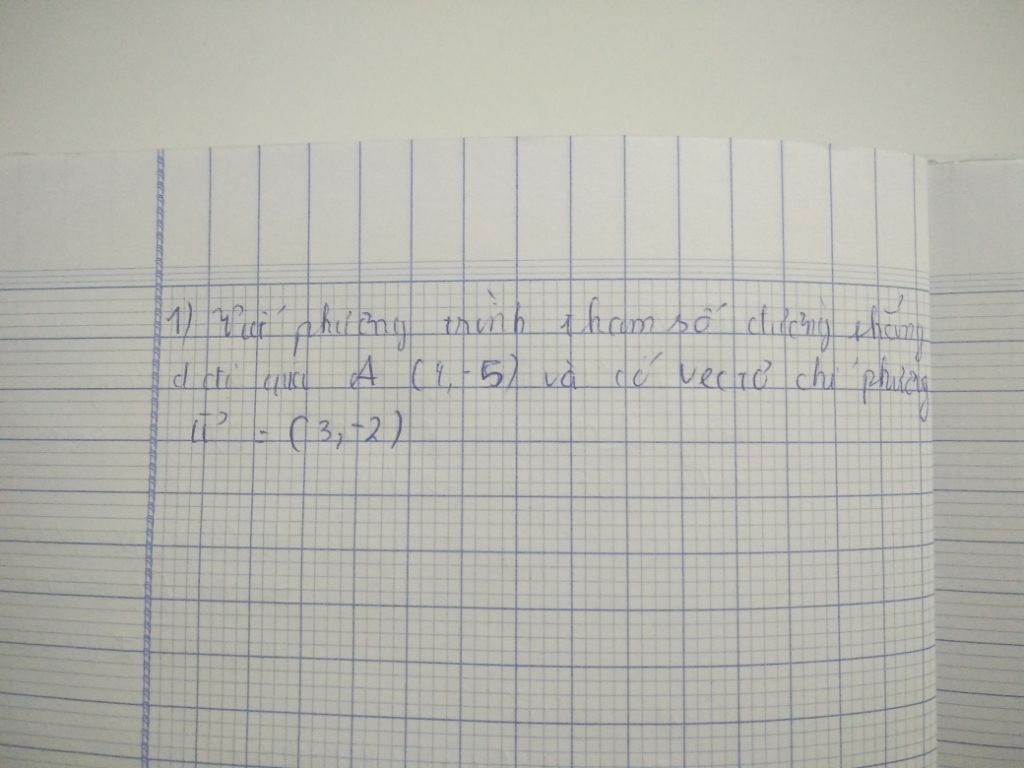 1) Viết phương trình tham số đường thẳng
d đi qua A (4,-5) và có vectơ chỉ phương
u = (3,-2)